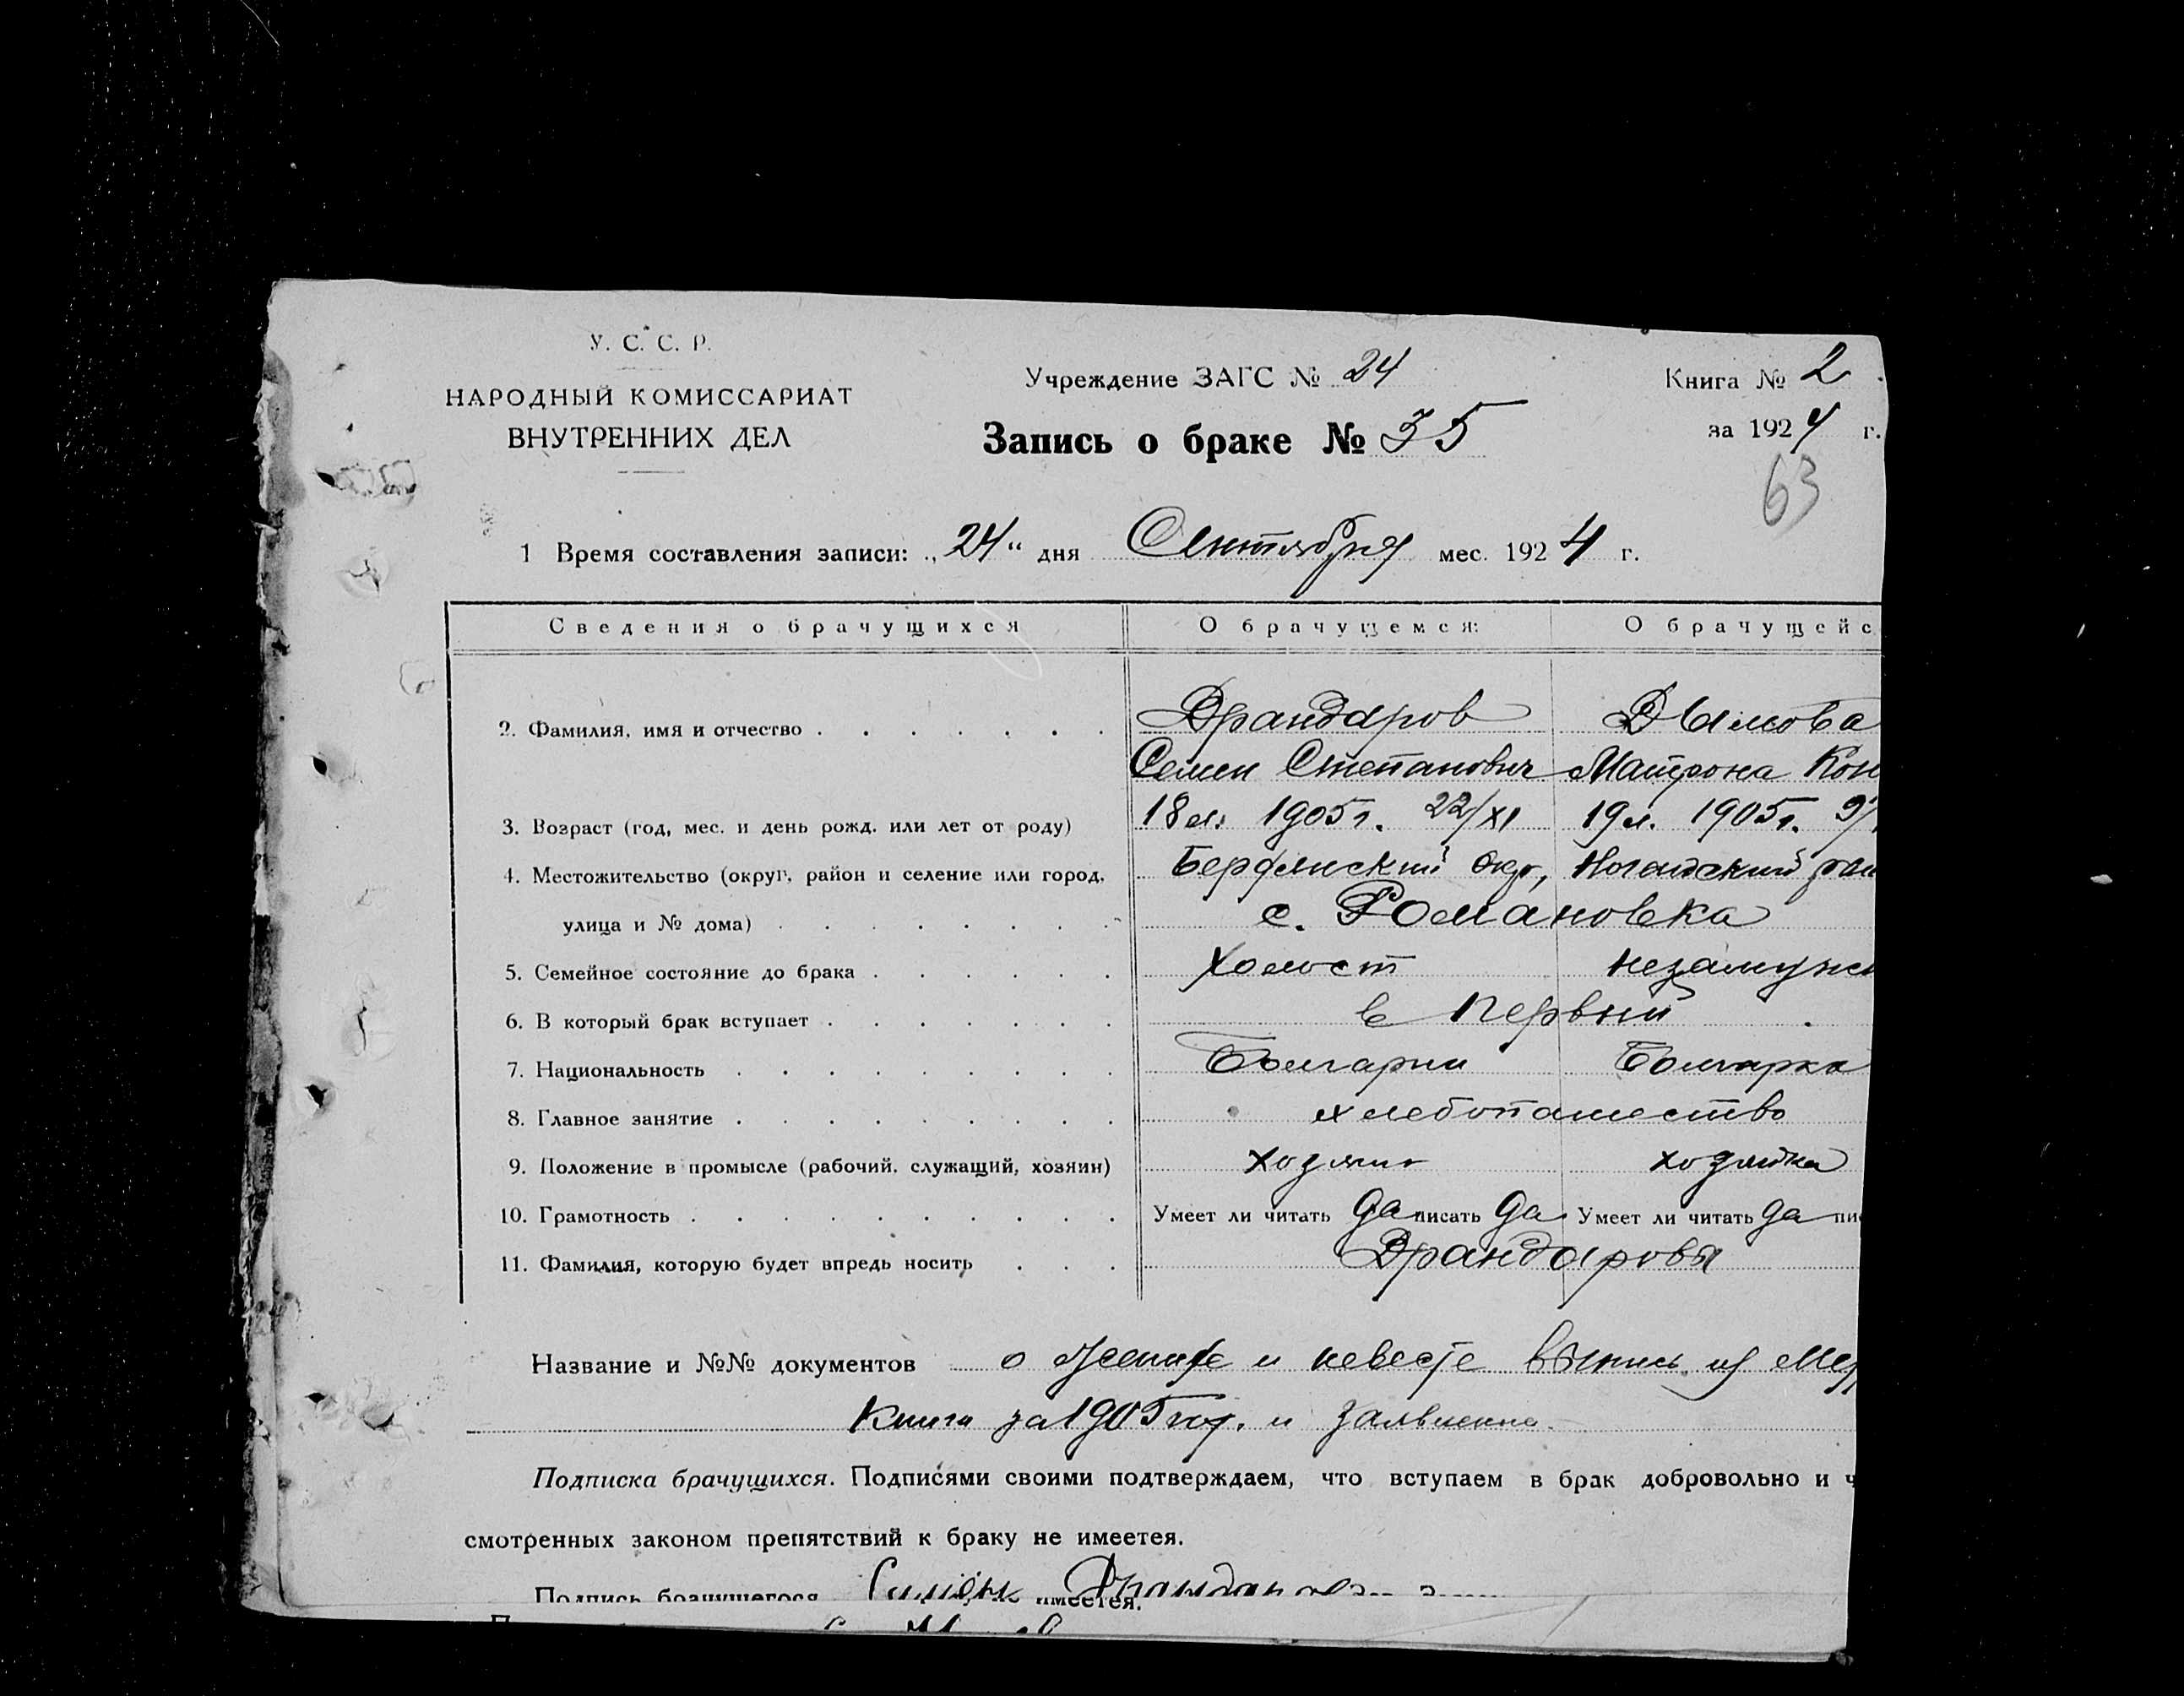 У. С. С. Р.
НАРОДНЫЙ КОМИССАРИАТ
ВНУТРЕННИХ ДЕЛ
Учреждение ЗАГС № 24
Запись о браке № 35
Книга № 2
за 1924 г.
63
1 Время составления записи: „24“ дня Сентября мес. 1924 г.
Сведения о брачущихся О брачущемся: О брачущейс
2. Фамилия, имя и отчество Драндаров Дымова
Семен Степанович Матрона Кон
3. Возраст (год, мес. и день рожд. или лет от роду) 18 л. 1905 г. 22/XI 19 л. 1905 г. 9/
4. Местожительство (округ, район и селение или город, Бердянский окр, Ногайский рай
улица и № дома) с. Романовка
5. Семейное состояние до брака Холост незамужн
6. В который брак вступает в Первый
7. Национальность Болгарин Болгарка
8. Главное занятие хлебопашество
9. Положение в промысле (рабочий, служащий, хозяин) хозяин хозяйка
10. Грамотность Умеет ли читать да писать да Умеет ли читать да пи
11. Фамилия, которую будет впредь носить Драндаровы
Название и №№ документов о женихе и невесте выпись из Мет
Книги за 1905 год. и заявление
Подписка брачущихся. Подписями своими подтверждаем, что вступаем в брак добровольно и ч
смотренных законом препятствий к браку не имеетея.
Подпись брачущегося
имеетея.